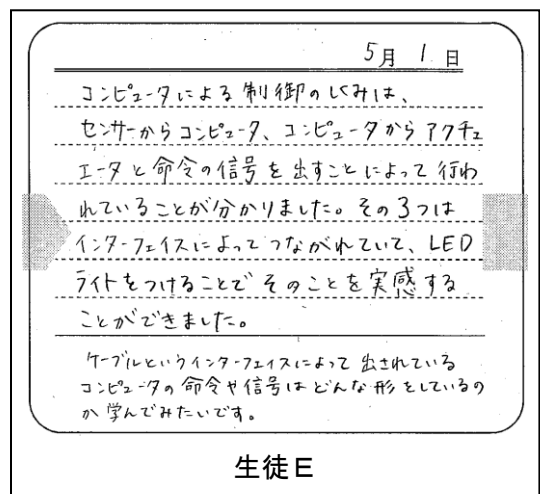 5月 1 日
コンピュータによる制御のしくみは、
センサーからコンピュータ、コンピュータからアクチュ
エータと命令の信号を出すことによって行わ
れていることが分かりました。その3つは
インターフェイスによってつながれていて、LED
ライトをつけることでそのことを実感する
ことができました。
ケーブルというインターフェイスによって出されている
コンピュータの命令や信号はどんな形をしているの
か学んでみたいです。
生徒E